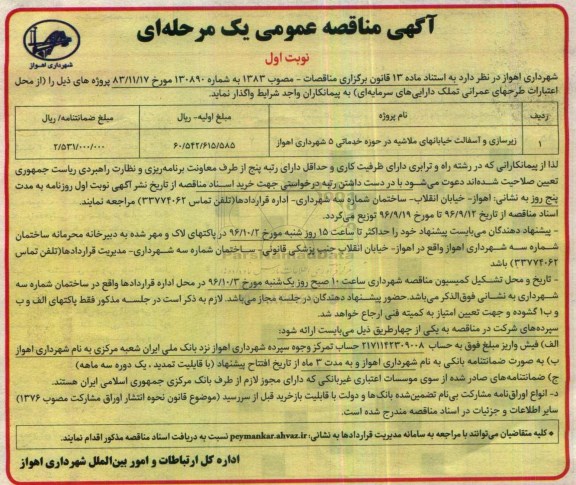 آگهی مناقصه عمومی یک مرحله‌ای
نوبت اول
شهرداری اهواز
شهرداری اهواز در نظر دارد به استناد ماده ۱۳ قانون برگزاری مناقصات - مصوب ۱۳۸۳ به شماره ۱۳۰۸۹۰ مورخ ۸۳/۱۱/۱۷ پروژه های ذیل را (از محل
اعتبارات طرحهای عمرانی تملک دارایی‌های سرمایه‌ای) به پیمانکاران واجد شرایط واگذار نماید.
ردیف نام پروژه مبلغ اولیه- ریال مبلغ ضمانتنامه/ ریال
۱ زیرسازی و آسفالت خیابانهای ملاشیه در حوزه خدماتی ۵ شهرداری اهواز ۶۰/۵۴۲/۶۱۵/۵۸۵ ۲/۵۳۱/۰۰۰/۰۰۰
لذا از پیمانکارانی که در رشته راه و ترابری دارای ظرفیت کاری و حداقل دارای رتبه پنج از طرف معاونت برنامه‌ریزی و نظارت راهبردی ریاست جمهوری
تعیین صلاحیت شده‌اند دعوت می‌شود با در دست داشتن رتبه درخواستی جهت خرید اسناد مناقصه از تاریخ نشر آگهی نوبت اول روزنامه به مدت
پنج روز به نشانی: اهواز- خیابان انقلاب- ساختمان شماره سه شهرداری- اداره قراردادها(تلفن تماس ۳۳۷۷۴۰۶۲) مراجعه نمایند.
اسناد مناقصه از تاریخ ۹۶/۹/۱۲ تا مورخ ۹۶/۹/۱۹ توزیع می‌گردد.
- پیشنهاد دهندگان می‌بایست پیشنهاد خود را حداکثر تا ساعت ۱۵ روز شنبه مورخ ۹۶/۱۰/۲ در پاکتهای لاک و مهر شده به دبیرخانه محرمانه ساختمان
شماره سه شهرداری اهواز واقع در اهواز- خیابان انقلاب جنب پزشکی قانونی- ساختمان شماره سه شهرداری- مدیریت قراردادها(تلفن تماس
۳۳۷۷۴۰۶۲) باشد
- تاریخ و محل تشکیل کمیسیون مناقصه شهرداری ساعت ۱۰ صبح روز یکشنبه مورخ ۹۶/۱۰/۳ در محل اداره قراردادها واقع در ساختمان شماره سه
شهرداری به نشانی فوق‌الذکر می‌باشد. حضور پیشنهاد دهندگان در جلسه مجاز می‌باشد. لازم به ذکر است در جلسه مذکور فقط پاکتهای الف و ب
و ب۱ گشوده و جهت تعیین امتیاز به کمیته فنی ارجاع خواهد شد.
سپرده‌های شرکت در مناقصه به یکی از چهارطریق ذیل می‌بایست ارائه شود:
الف) فیش واریز مبلغ فوق به حساب ۲۱۷۱۱۴۲۳۰۹۰۰۸ حساب تمرکز وجوه سپرده شهرداری اهواز نزد بانک ملی ایران شعبه مرکزی به نام شهرداری اهواز
ب) به صورت ضمانتنامه بانکی به نام شهرداری اهواز و به مدت ۳ ماه از تاریخ افتتاح پیشنهاد (با قابلیت تمدید ، یک دوره سه ماهه)
ج) ضمانتنامه‌های صادر شده از سوی موسسات اعتباری غیربانکی که دارای مجوز لازم از طرف بانک مرکزی جمهوری اسلامی ایران هستند.
د- انواع اوراق‌نامه مشارکت بی‌نام تضمین‌شده بانک‌ها و دولت با قابلیت بازخرید قبل از سررسید (موضوع قانون نحوه انتشار اوراق مشارکت مصوب ۱۳۷۶)
سایر اطلاعات و جزئیات در اسناد مناقصه مندرج شده است.
* کلیه متقاضیان می‌توانند با مراجعه به سامانه مدیریت قراردادها به نشانی: peymankar.ahvaz.ir نسبت به دریافت اسناد مناقصه مذکور اقدام نمایند.
اداره کل ارتباطات و امور بین‌الملل شهرداری اهواز